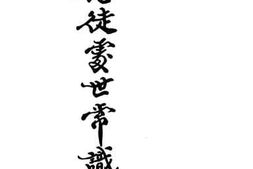 徒處世常識